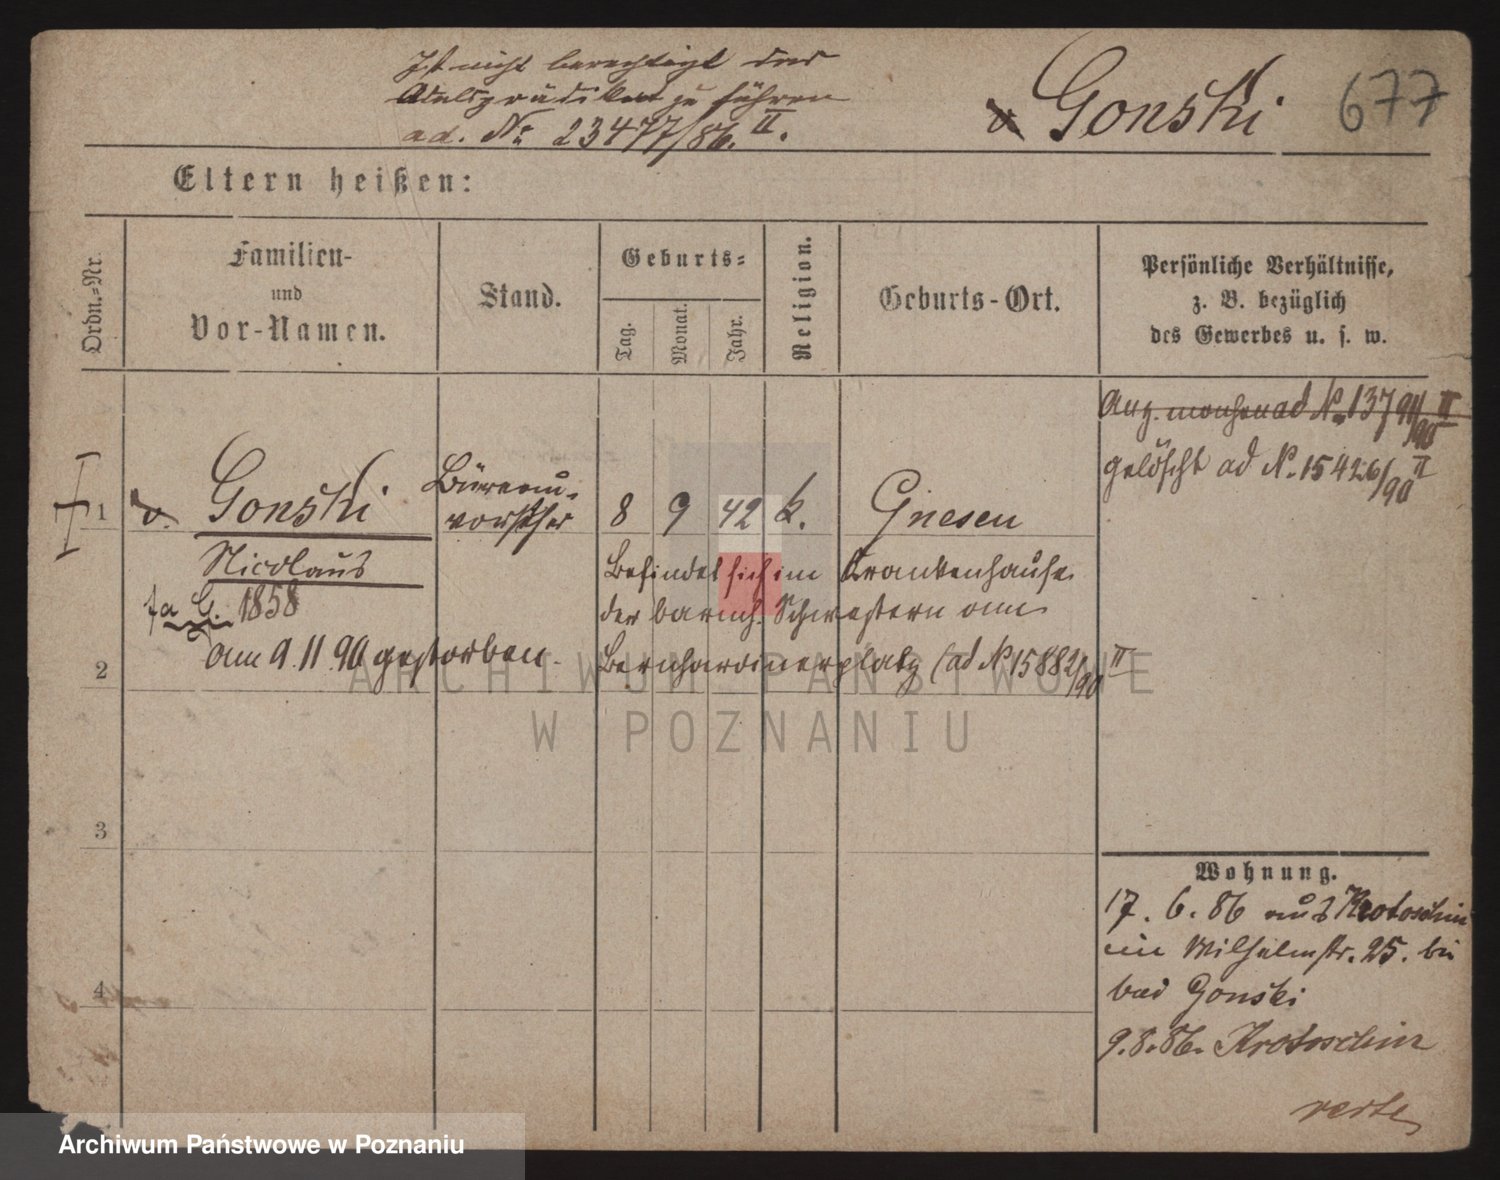 Ist nicht berechtigt das
Adelsprädikat zu führen
ad. No 23477/86. II.
v Gonski
677
Eltern heißen:
Ordn.-Nr.
Familien-
und
Vor-Namen.
Stand.
Geburts-
Tag.
Monat.
Jahr.
Religion.
Geburts-Ort.
Persönliche Verhältnisse,
z. B. bezüglich
des Gewerbes u. s. w.
ad No 13791/90 II
gelöscht ad No 15426/90 II
1
v. Gonski
Nicolaus
Büreau-
vorsteher
8 9 42 k. Gnesen
Befindet sich im Krankenhause
der barmh. Schwestern am
Bernhardinerplatz (ad No 15882/90 II
1858
am 9. 11. 90 gestorben.
2
3
4
Wohnung.
17. 6. 86 aus Krotoschin
in Wilhelmstr. 25. bei
Gonski
9. 8. 86. Krotoschin
verte
ARCHIWUM PAŃSTWOWE
W POZNANIU
Archiwum Państwowe w Poznaniu